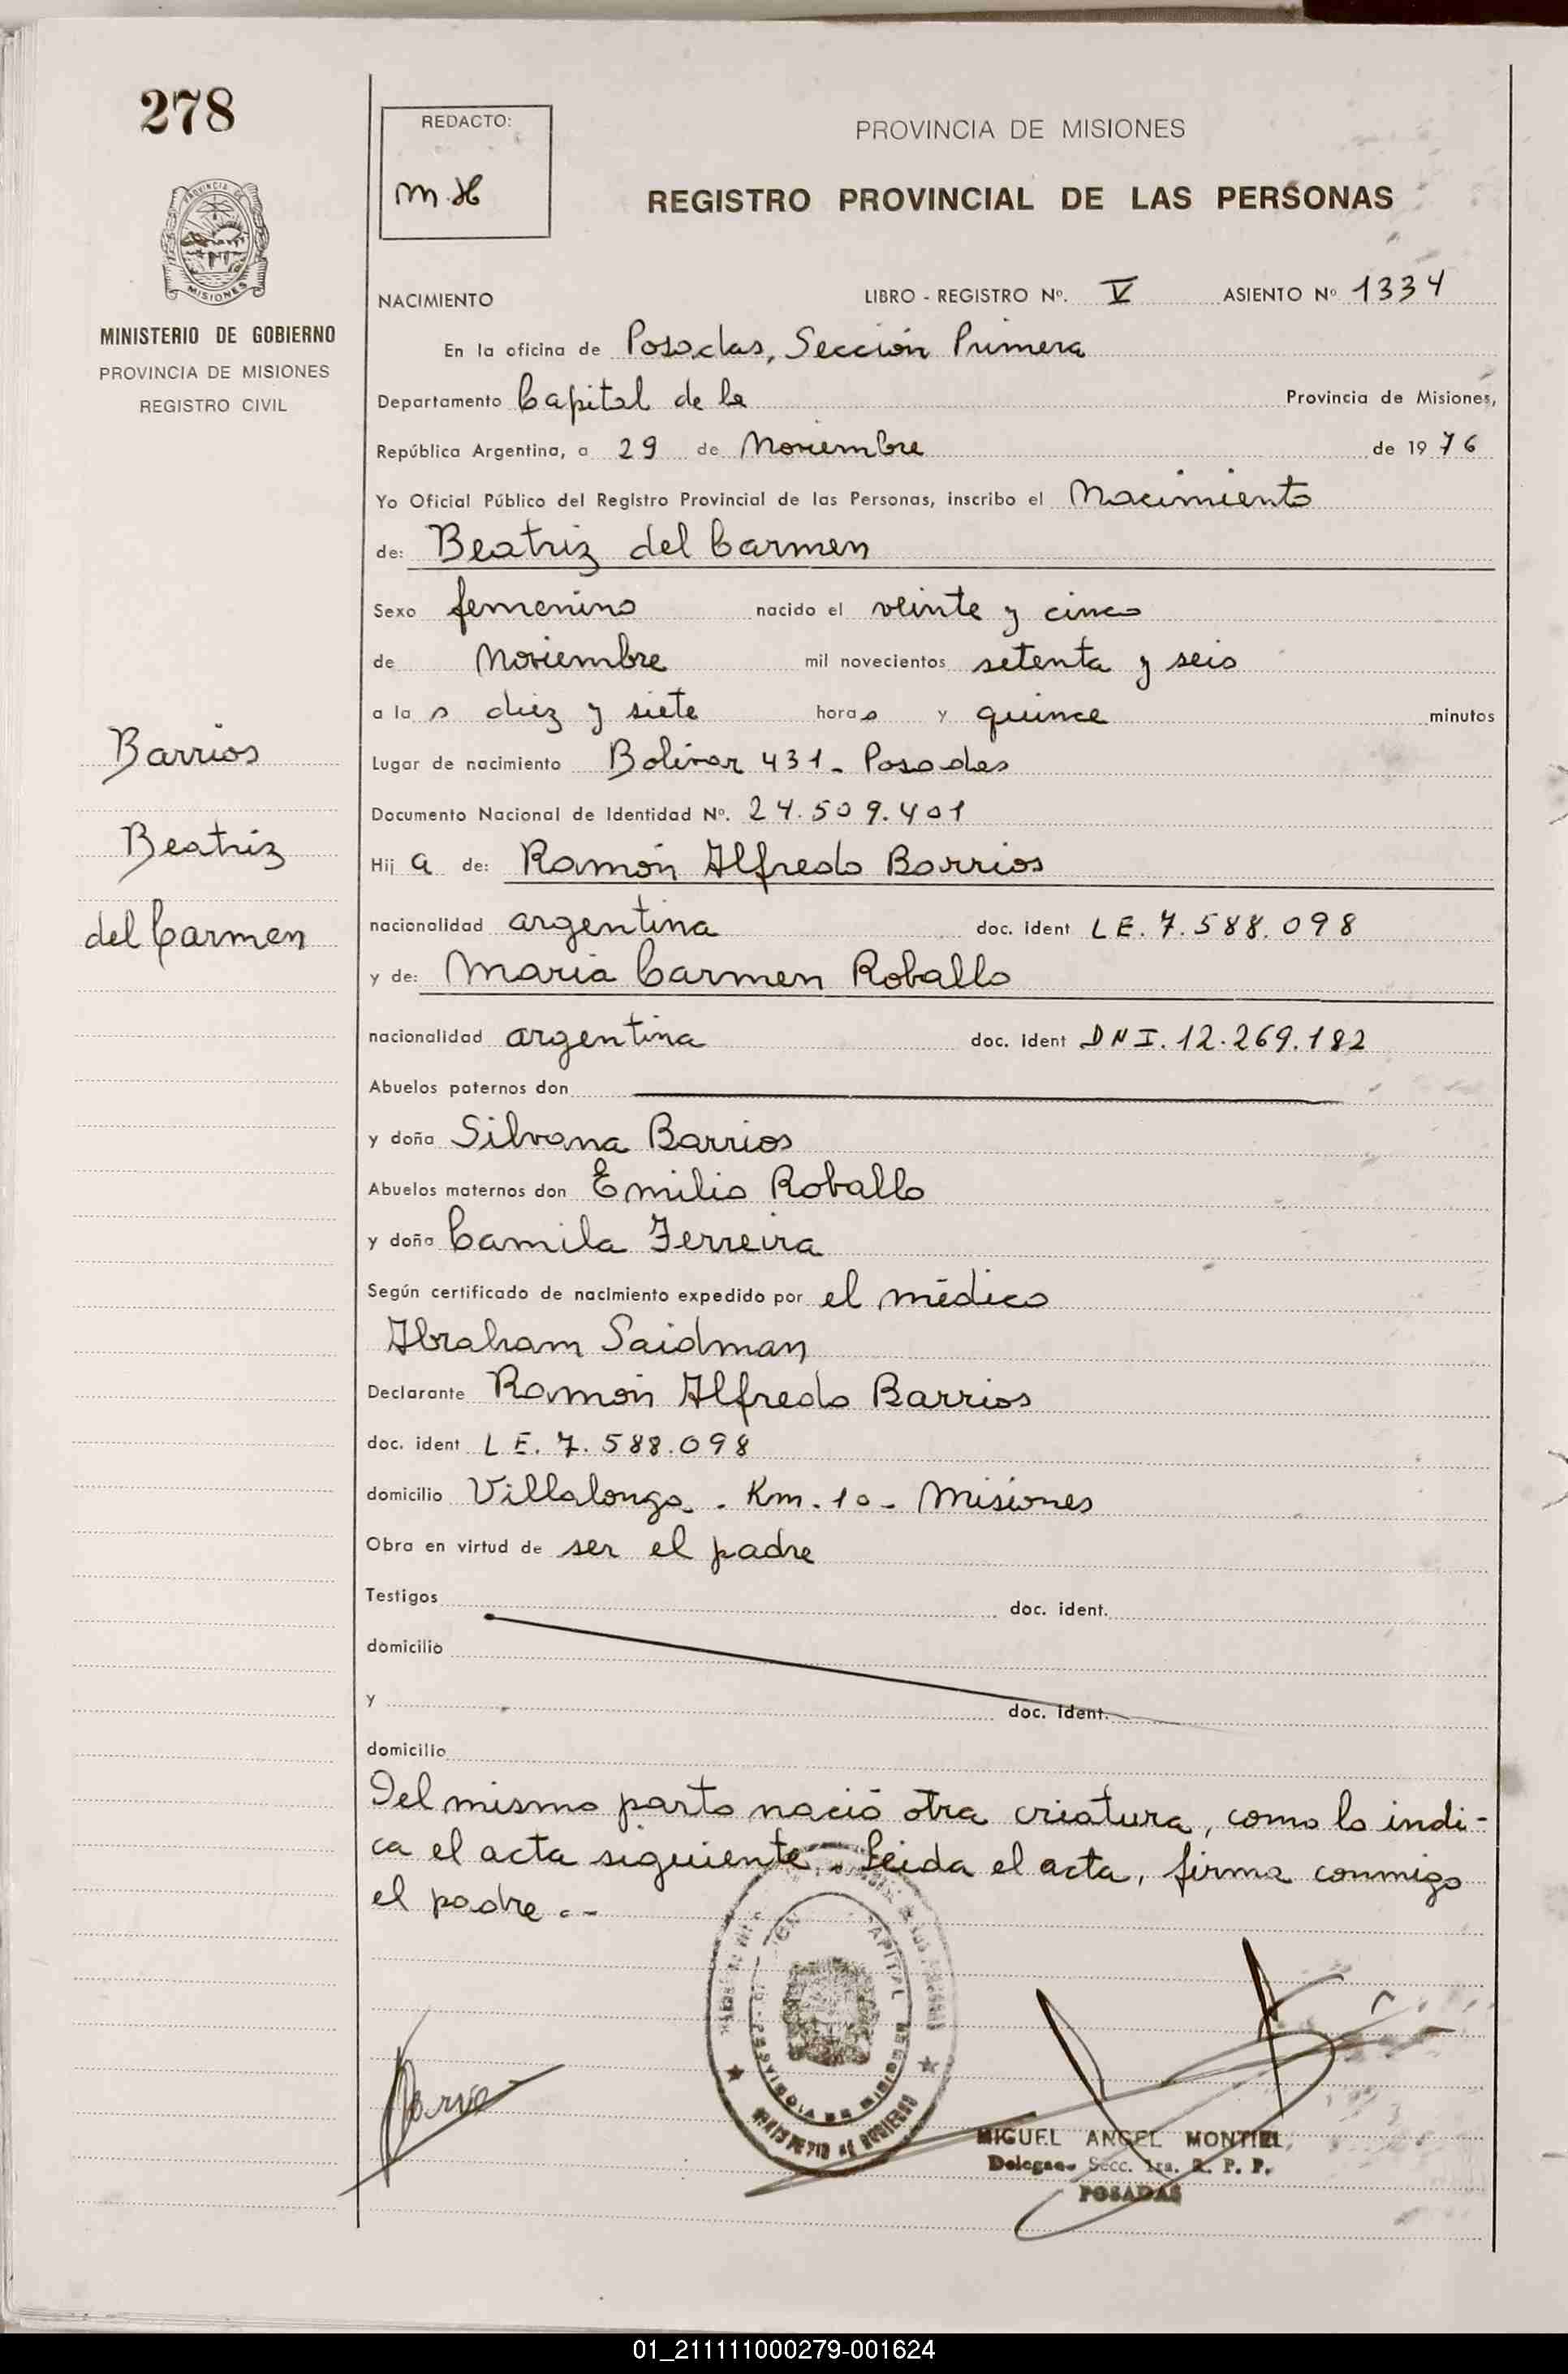 278
PROVINCIA DE
MISIONES
MINISTERIO DE GOBIERNO
PROVINCIA DE MISIONES
REGISTRO CIVIL
Barrios
Beatriz
del Carmen
REDACTO:
M.H
PROVINCIA DE MISIONES
REGISTRO PROVINCIAL DE LAS PERSONAS
NACIMIENTO LIBRO - REGISTRO Nº. V ASIENTO Nº 1334
En la oficina de Posadas, Sección Primera
Departamento Capital de la Provincia de Misiones,
República Argentina, a 29 de Noviembre de 1976
Yo Oficial Público del Registro Provincial de las Personas, inscribo el Nacimiento
de: Beatriz del Carmen
Sexo femenino nacido el veinte y cinco
de Noviembre mil novecientos setenta y seis
a la s diez y siete horas y quince minutos
Lugar de nacimiento Bolívar 431- Posadas
Documento Nacional de Identidad Nº. 24.509.401
Hij a de: Ramón Alfredo Barrios
nacionalidad argentina doc. ident LE. 7.588.098
y de: María Carmen Roballo
nacionalidad argentina doc. ident DNI. 12.269.182
Abuelos paternos don
y doña Silvana Barrios
Abuelos maternos don Emilio Roballo
y doña Camila Ferreira
Según certificado de nacimiento expedido por el médico
Abraham Saidman
Declarante Ramón Alfredo Barrios
doc. ident LE. 7.588.098
domicilio Villalonga. Km. 10- Misiones
Obra en virtud de ser el padre
Testigos doc. ident.
domicilio
y doc. ident.
domicilio
Del mismo parto nació otra criatura, como lo indi-
ca el acta siguiente. Leida el acta, firma conmigo
el padre.-
CAPITAL
PROVINCIA DE MISIONES
MINISTERIO DE GOBIERNO
MIGUEL ANGEL MONTIEL
Secc. 1ra. R. P. P.
POSADAS
01_211111000279-001624